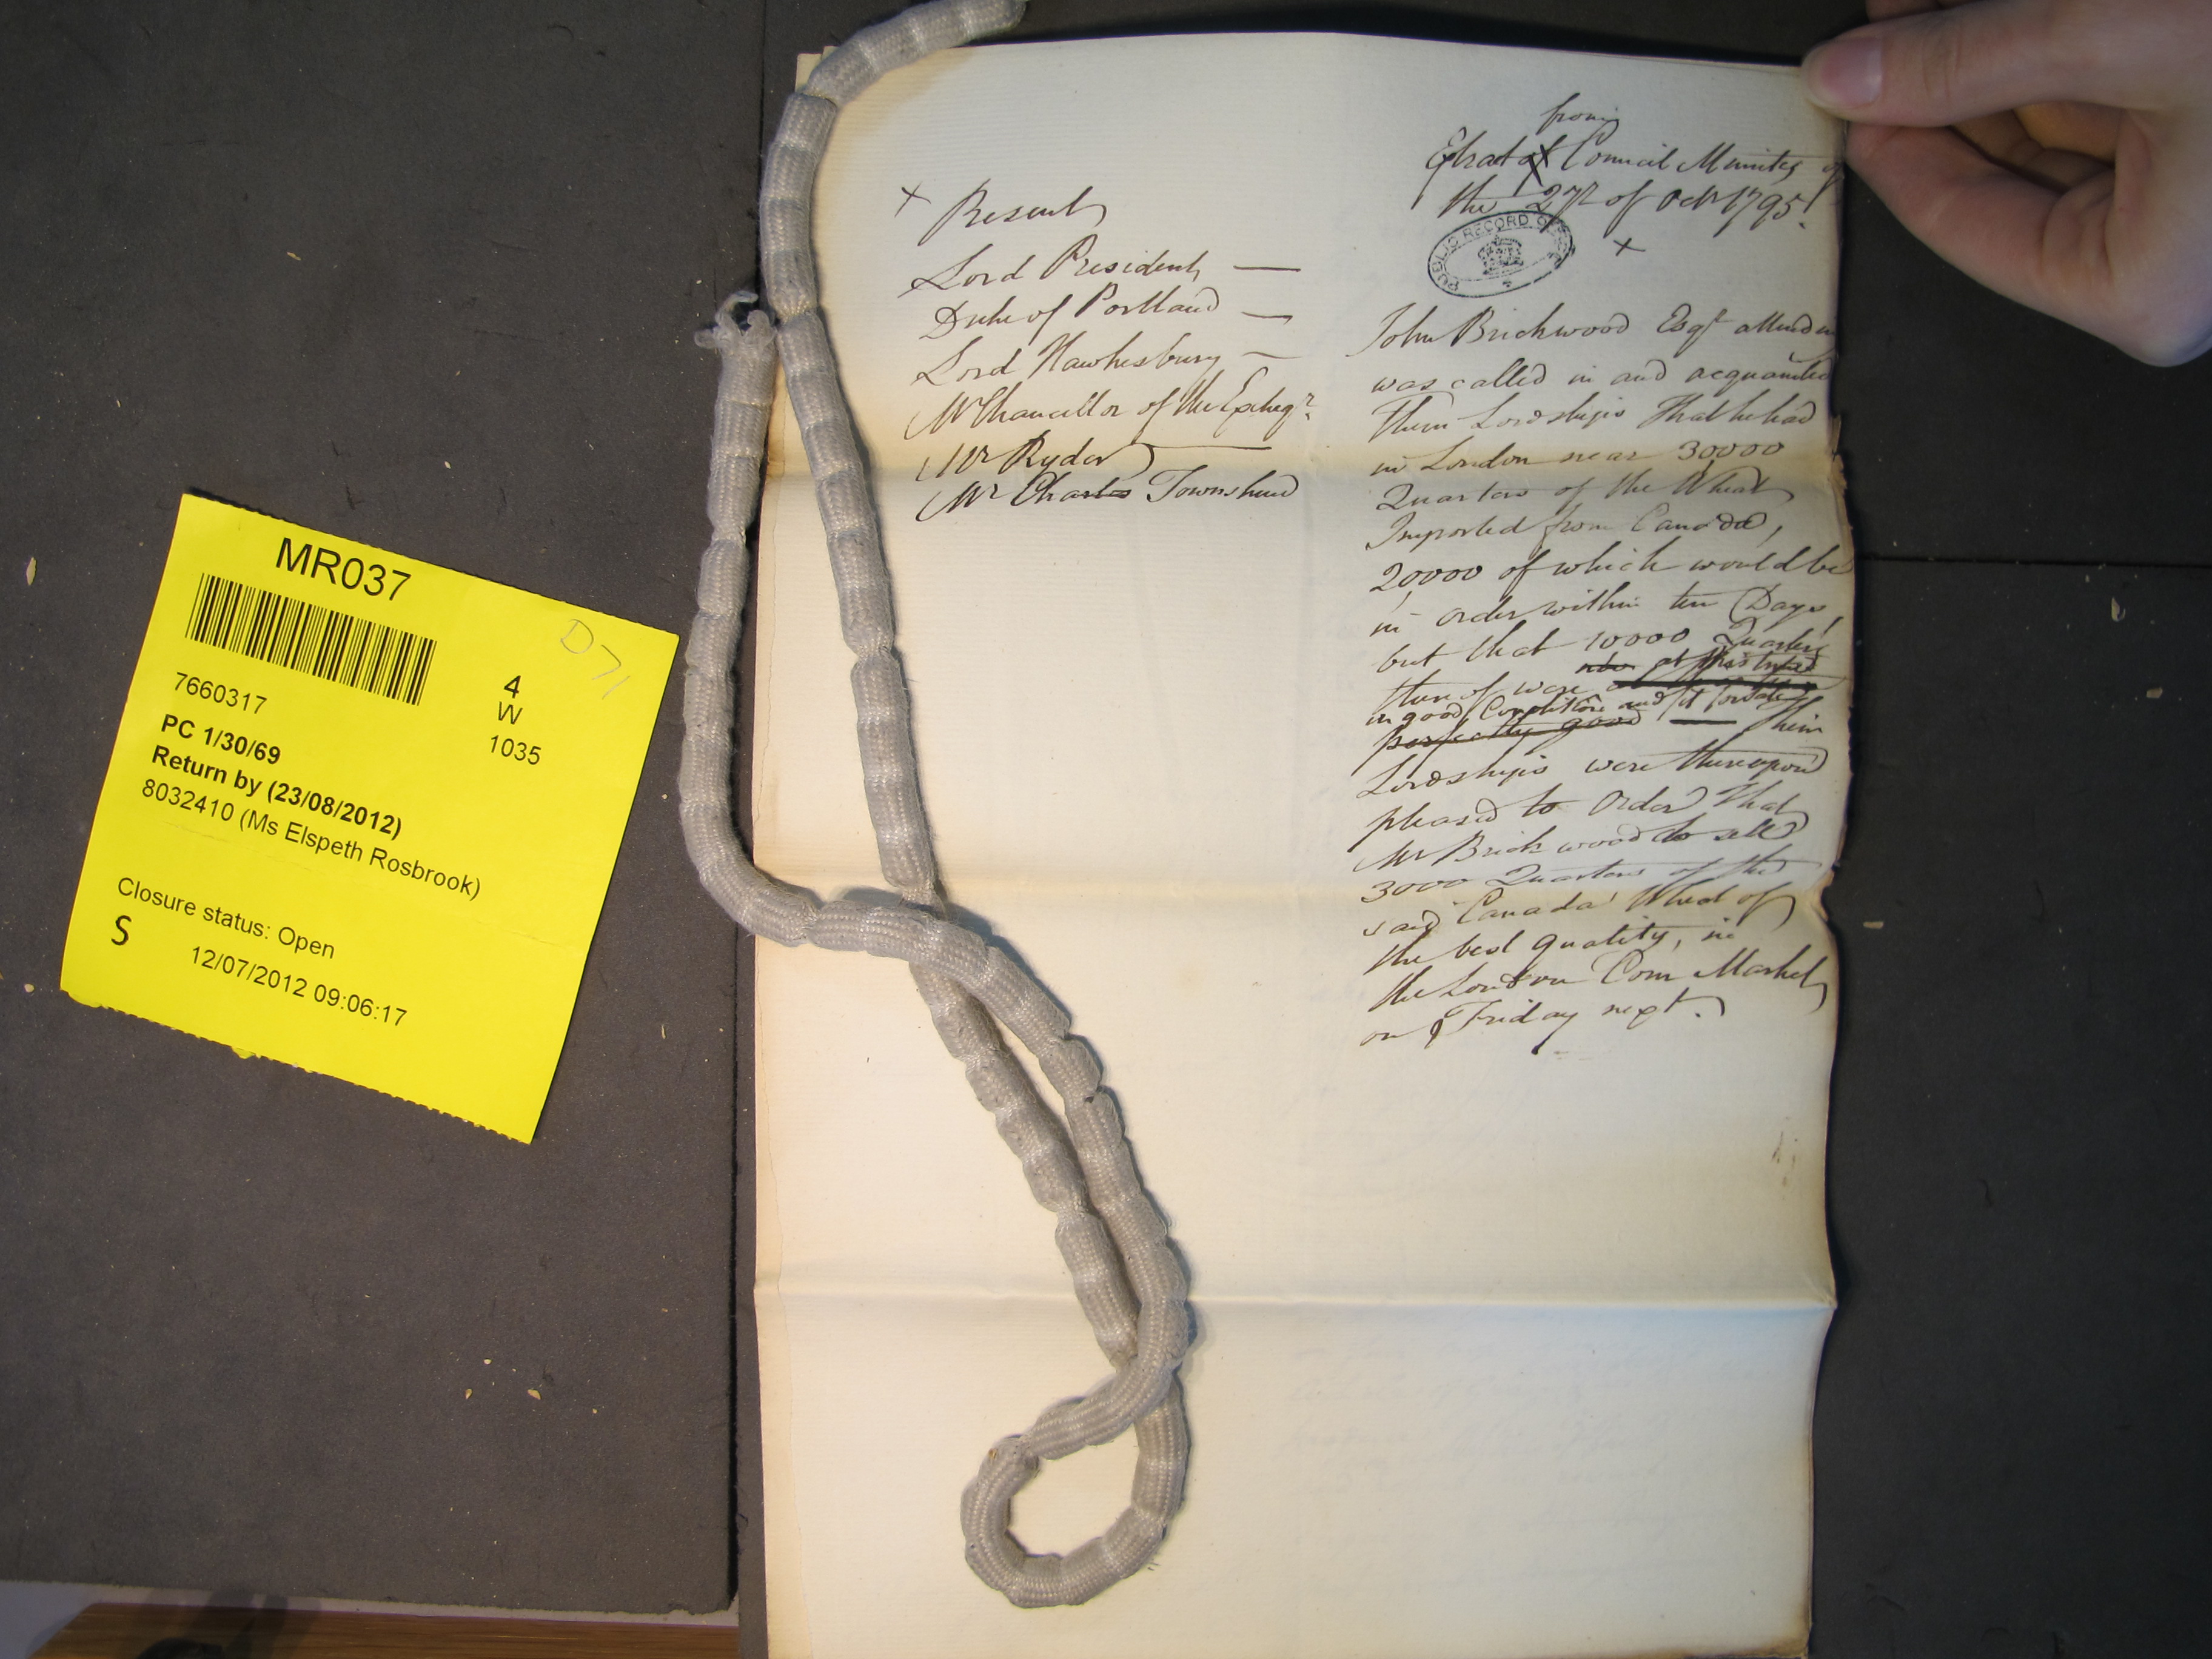 MR037
D71
7660317
4
W
1035
PC 1/30/69
Return by (23/08/2012)
8032410 (Ms Elspeth Rosbrook)
Closure status: Open
S
12/07/2012 09:06:17
x Present
Lord President —
Duke of Portland —
Lord Hawkesbury —
Mr Chancellor of the Excheqr.
Mr Ryder —
Mr Charles Townshend
from
Extract of Council Minutes of
the 27th of Octr 1795.
x
PUBLIC RECORD OFFICE
John Brickwood Esqr attending
was called in and acquainted
Their Lordships That he had
in London near 30000
Quarters of the Wheat
Imported from Canada,
20000 of which would be
in order within ten Days,
but that 10000 Quarters
now at this
thereof were
in good Condition and fit for Sale
perfectly good — Their
Lordships were thereupon
pleased to Order That
Mr Brickwood do sell
3000 Quarters of the
said Canada Wheat of
the best quality, in
the London Corn Market
on Friday next.